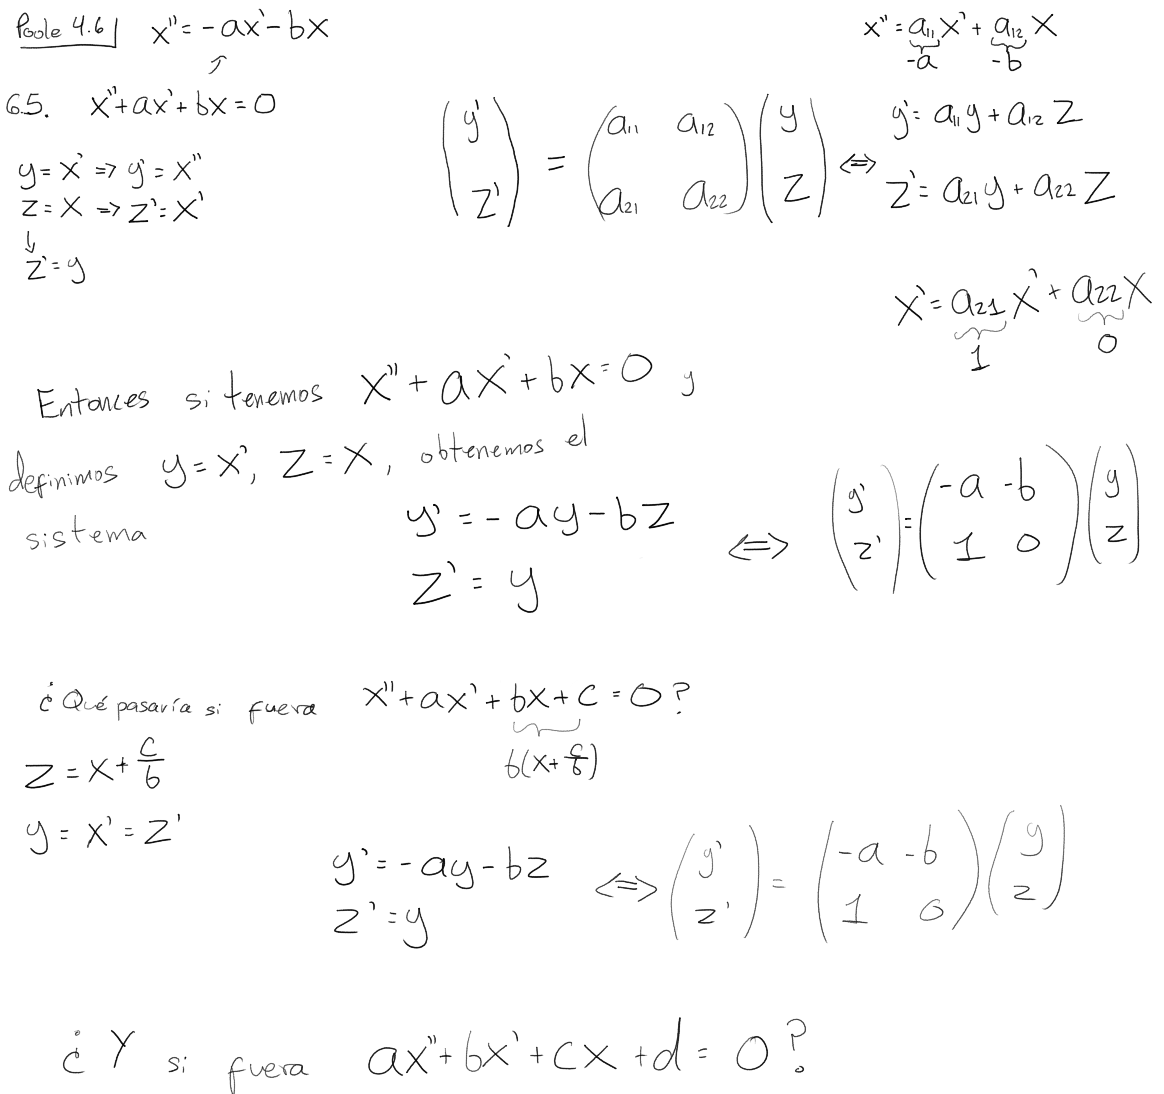 Poole 4.6 x'' = -ax' - bx
65. x'' + ax' + bx = 0
y = x' => y' = x''
z = x => z' = x'
↓
z' = y
x'' = a₁₁x' + a₁₂x
-a -b
(y' z') = (a₁₁ a₁₂ a₂₁ a₂₂)(y z) <=> y' = a₁₁y + a₁₂z
z' = a₂₁y + a₂₂z
x' = a₂₁x' + a₂₂x
1 0
Entonces si tenemos x'' + ax' + bx = 0 y
definimos y = x', z = x, obtenemos el
sistema
y' = -ay - bz
z' = y
<=> (y' z') = (-a -b 1 0)(y z)
¿Qué pasaría si fuera x'' + ax' + bx + c = 0?
b(x + c/b)
z = x + c/b
y = x' = z'
y' = -ay - bz
z' = y
<=> (y' z') = (-a -b 1 0)(y z)
¿Y si fuera ax'' + bx' + cx + d = 0?